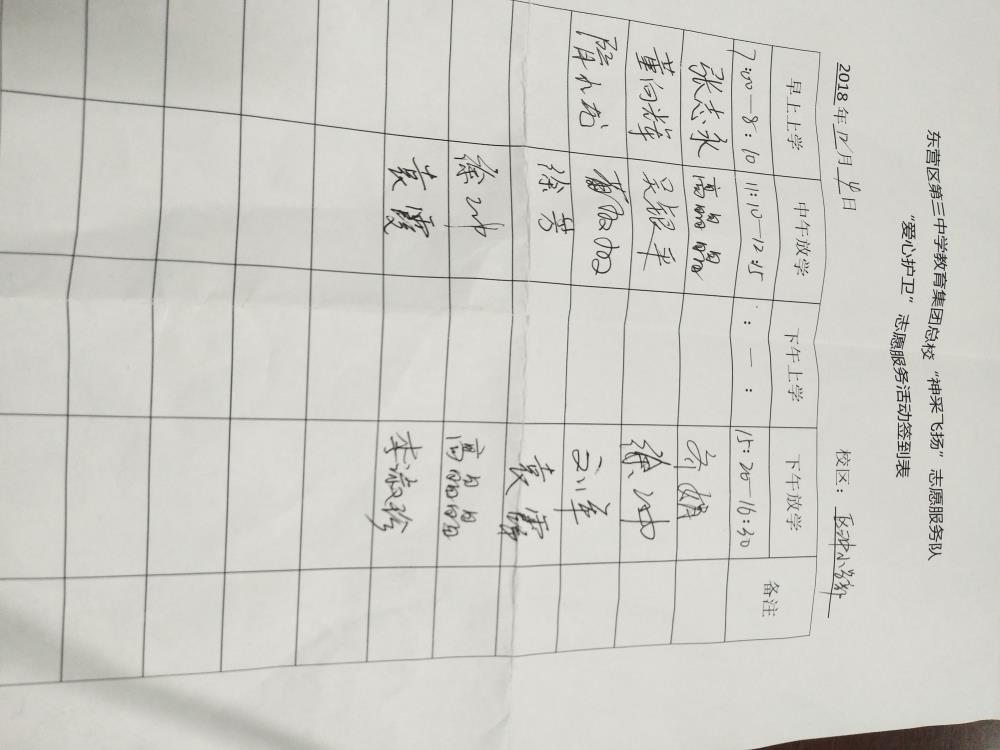 东营区第三中学教育集团总校“神采飞扬”志愿服务队
“爱心护卫”志愿服务活动签到表
2018年12月4日 校区：
早上上学 中午放学 下午上学 下午放学 备注
7:00—8:10 11:10—12:15 : — : 15:20—16:30
张志永 高晶晶 乔娟
董向辉 吴银平 徐冲
刘军
徐芳 袁霞
徐冲 高晶晶
袁霞 李淑珍